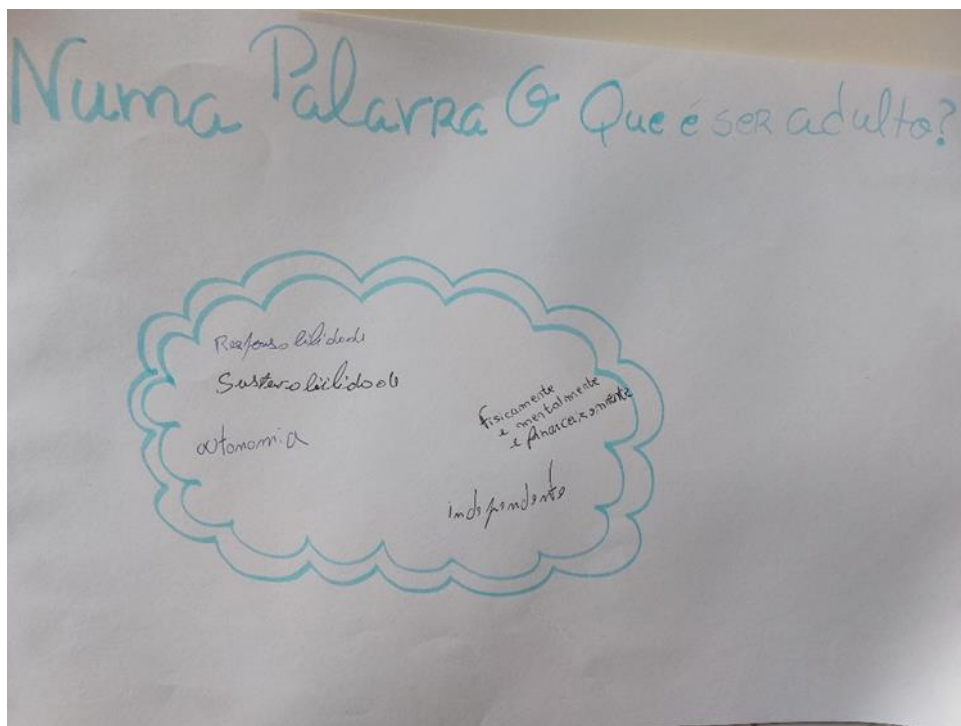 Numa Palavra O Que é ser adulto?
Responsabilidade
Sustentabilidade
autonomia
Fisicamente
e mentalmente
e financeiramente
independente